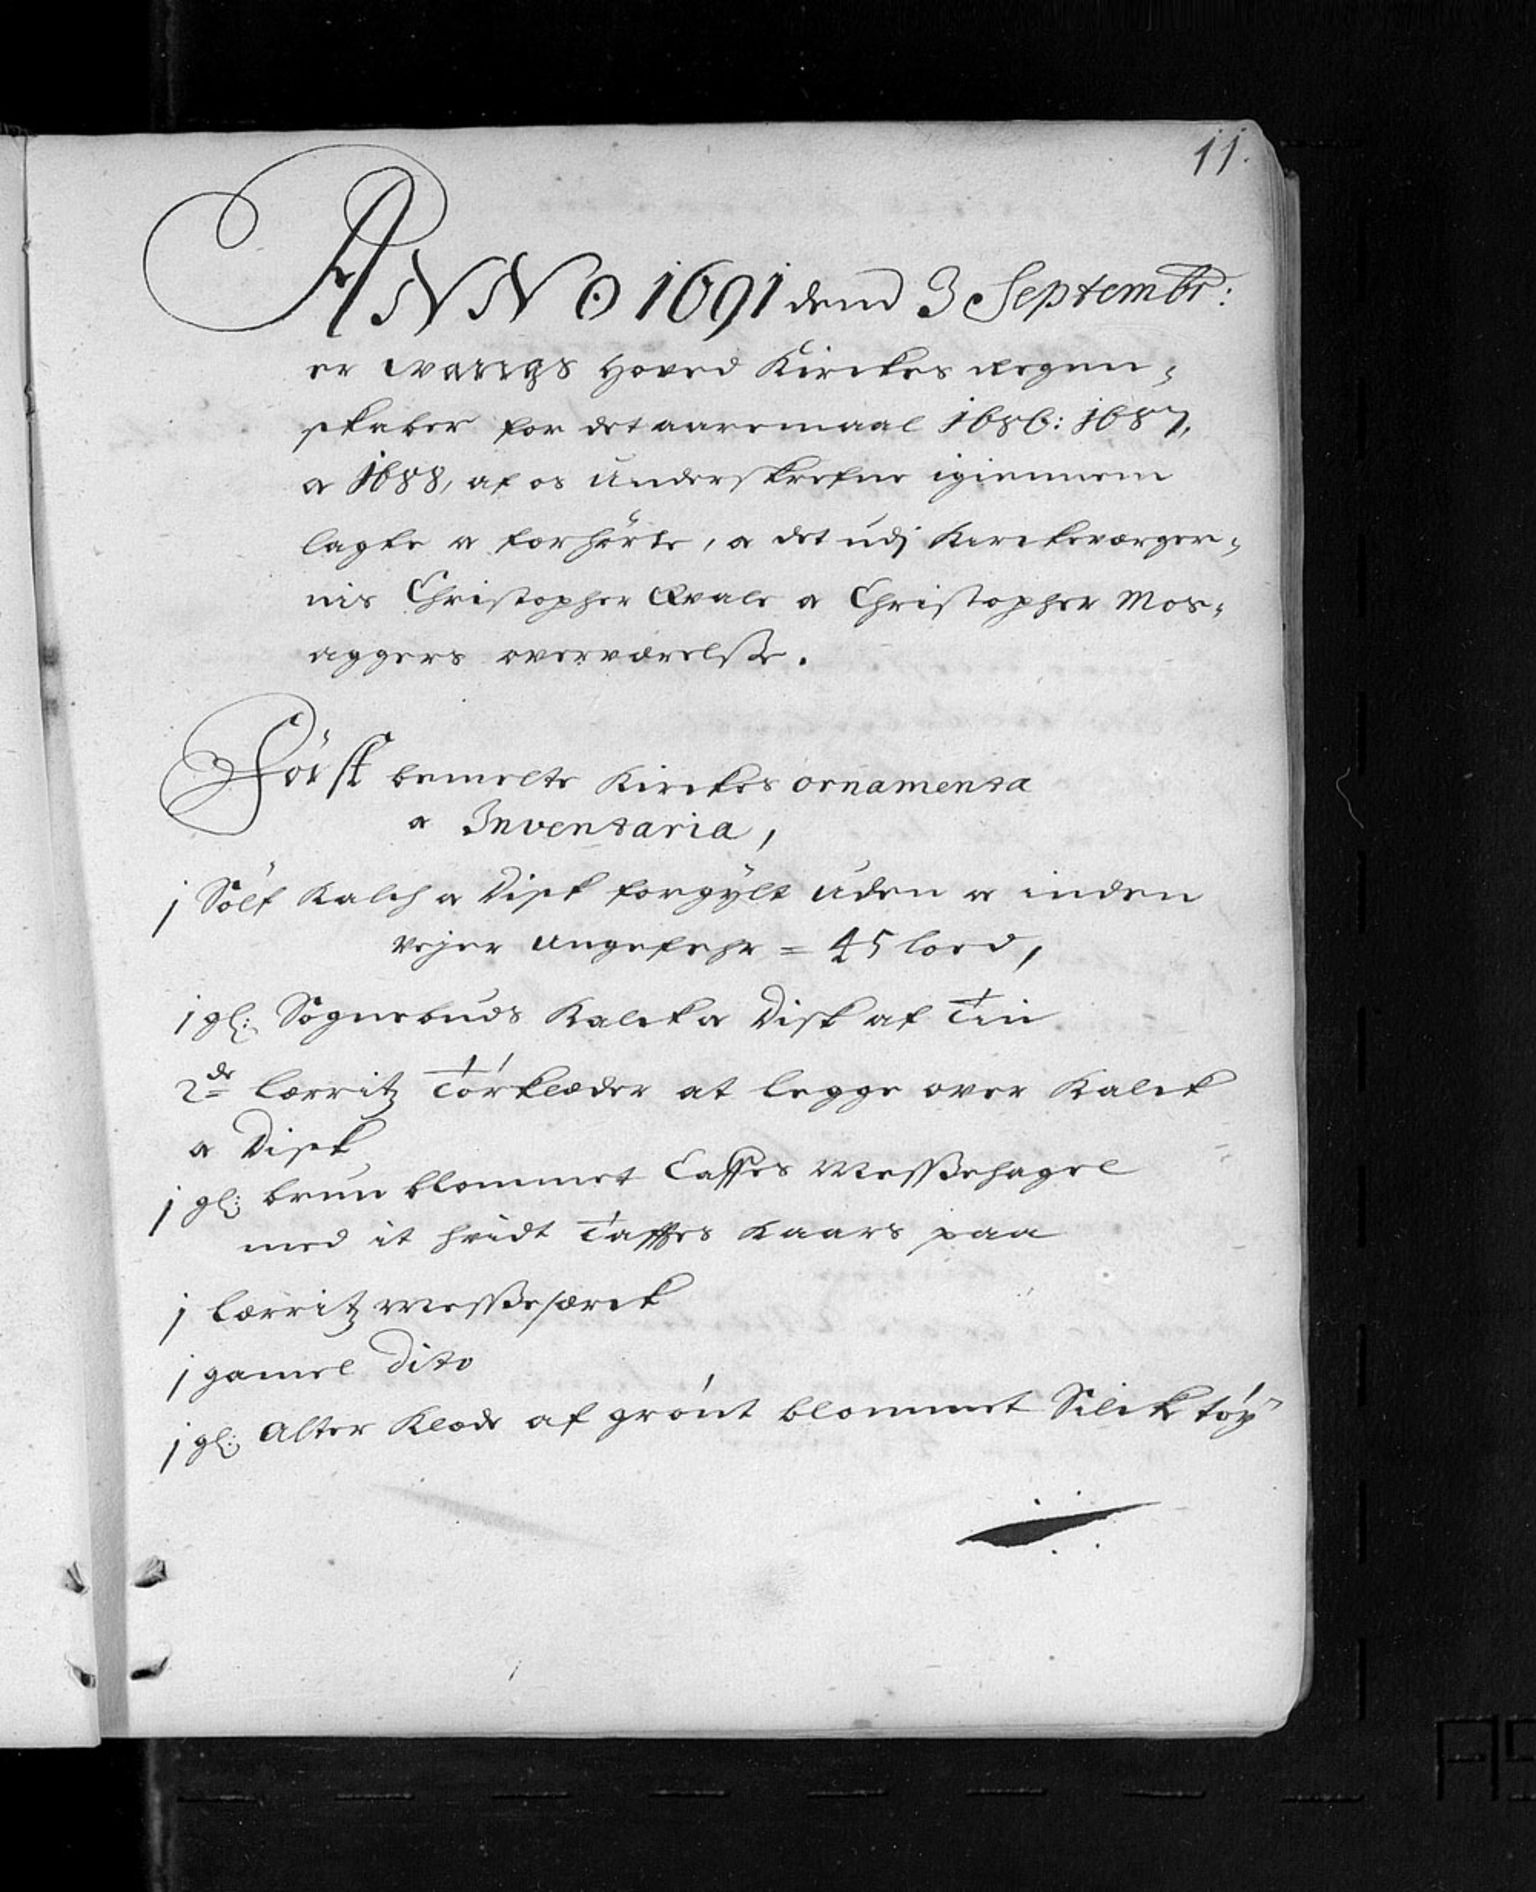 11.
ANNO 1691 dend 3 Septembr:
er Wangs Hoved Kirckes Regen-
skaber for det aaremaal 1686: 1687,
a 1688, af os Underskrefne igiennem
lagte a forhørte, a det udj Kirckeværger-
nis Christopher Qvale a Christopher Mos-
aggers overværelsse.
Först bemelte Kirckes ornamenta
a Inventaria,
j Sölf Kalch a Disk forgylt uden a inden
vejer ungefehr = 45 lood,
j gl: Sognebuds Kalck a Disk af Tin
2de lærritz Törklæder at legge over Kalck
a Disk
j gl: brun blommet Taffes Messehagel
med it hvidt Taffes Kaars paa
j Lærritz Messesærck
j gamel dito
j gl: Alter Klæde af grönt blommet Silcke töy